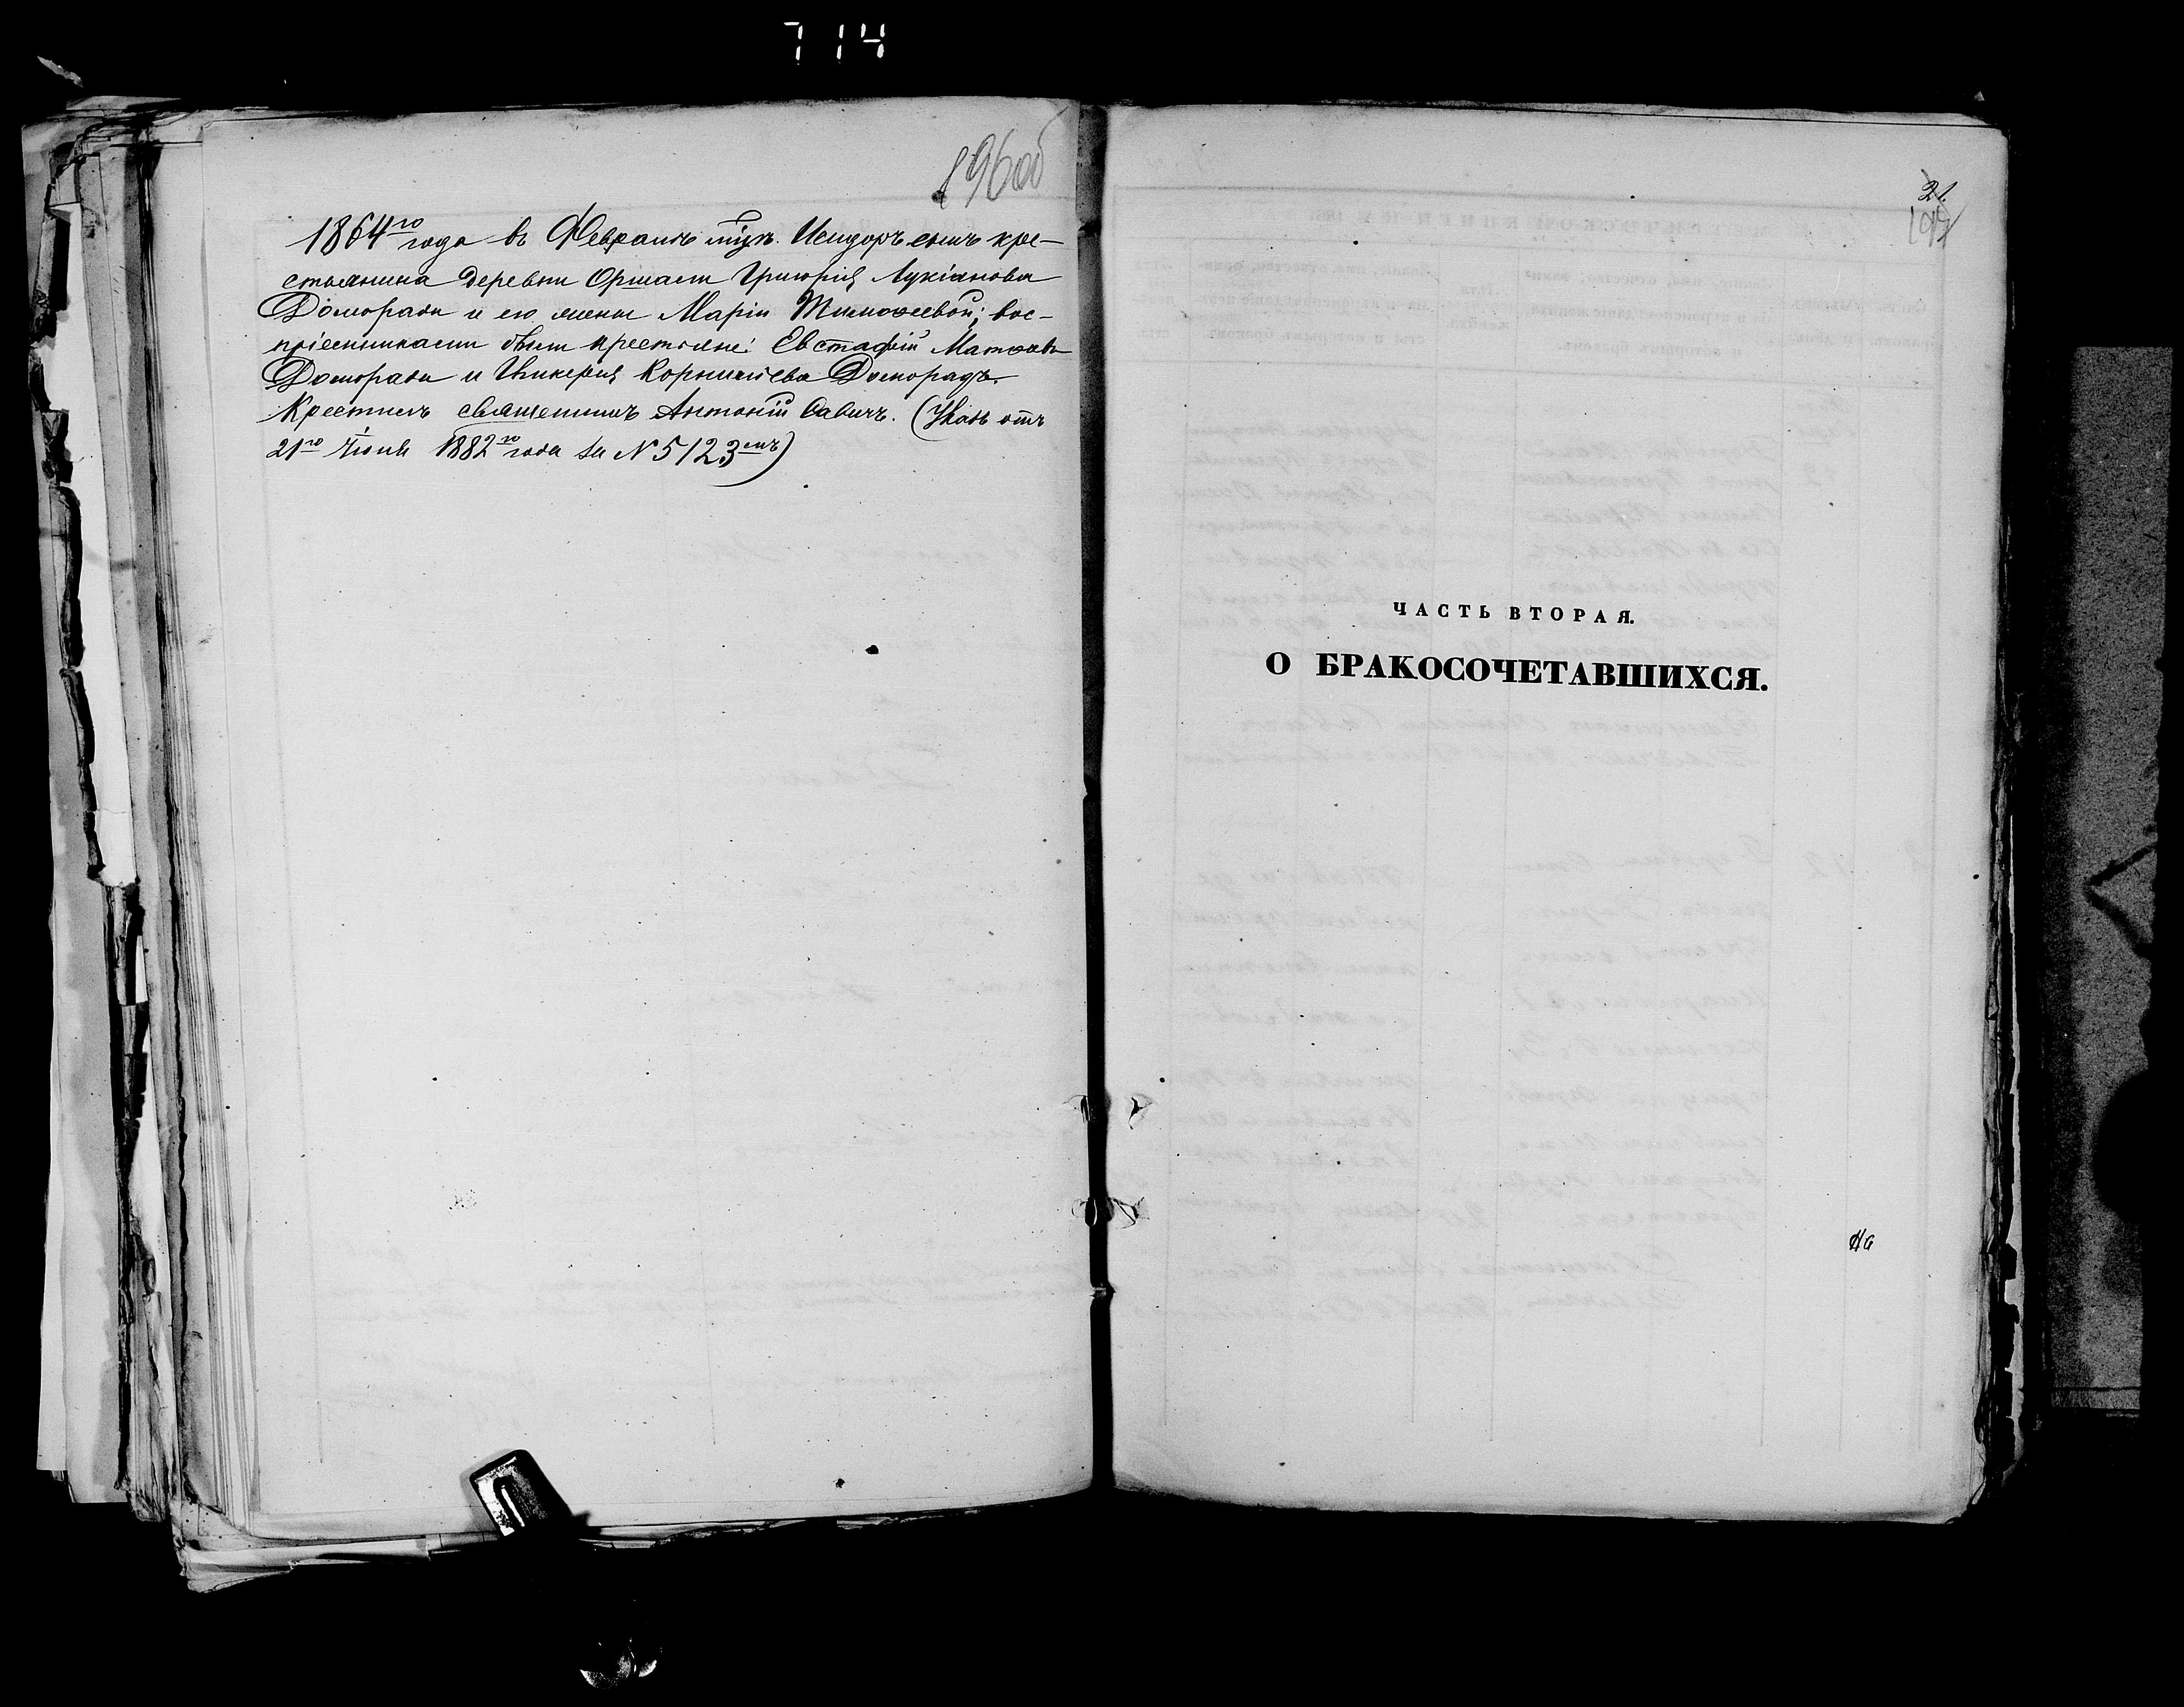 714
196об
1864го года въ Февралѣ мѣц. Исидоръ сынъ кре-
стьянина деревни Оршали Григорія Лукіанова
Домораза и его жены Маріи Тимоѳеевой; вос-
пріемниками были крестьяне: Евстафій Матѳѣевъ
Доморадъ и Гликерія Корниліева Доморадъ.
Крестилъ священникъ Антоній Савичъ. (Указъ отъ
21го Іюня 1882го года за № 5123емъ)
21.
197
ЧАСТЬ ВТОРАЯ.
О БРАКОСОЧЕТАВШИХСЯ.
На